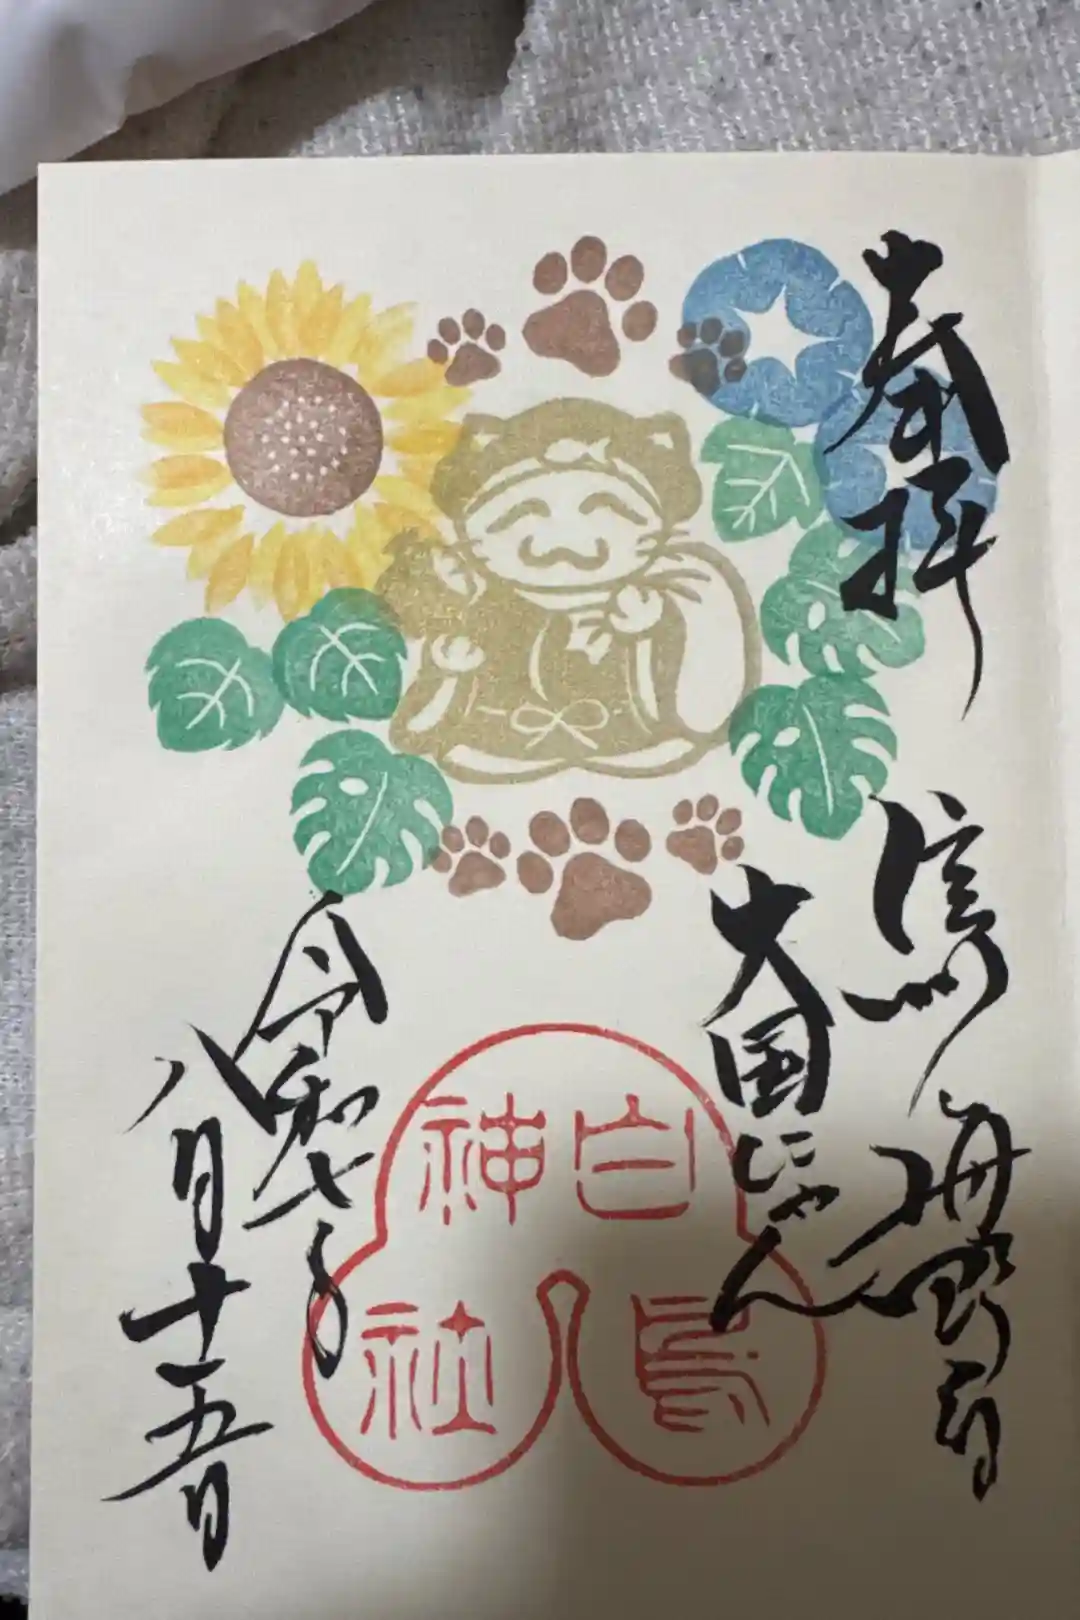 奉拝
信州 海野宿
大国にゃん
白鳥
神社
令和七年
八月十五日